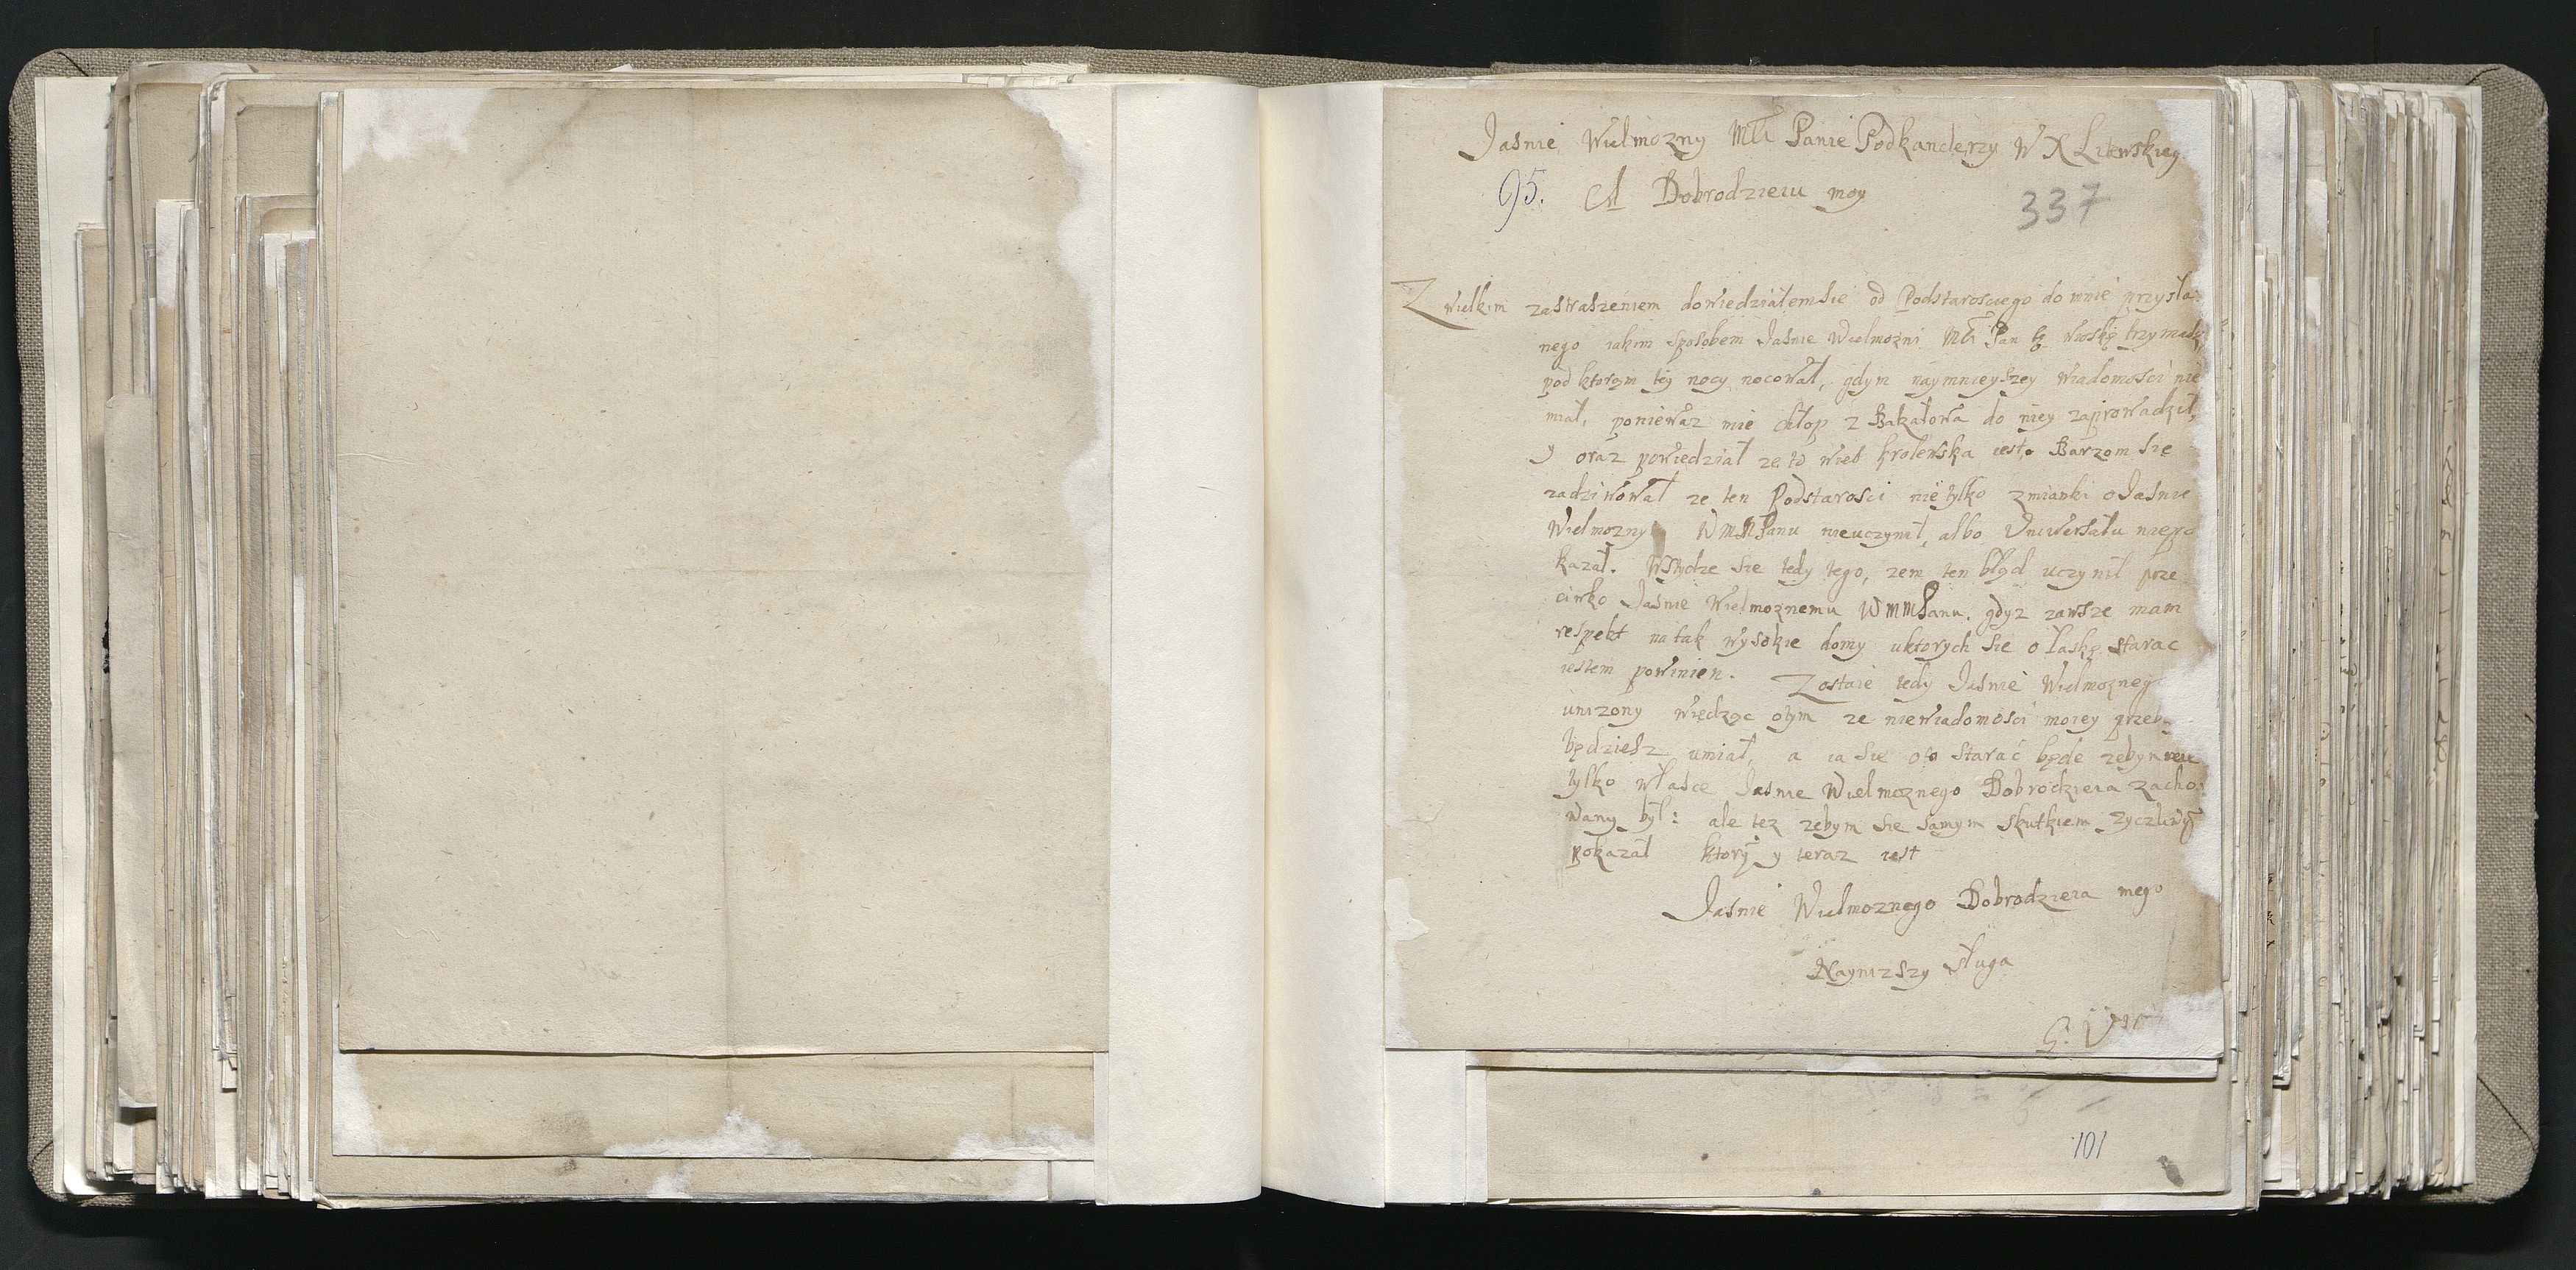 Jasnie Wielmozny Mći Panie Podkanclerzy W X Litewskieg
95. Dobrodzieiu moy
337
Z wielkim zastraszeniem dowiedziałemsie od Podstarosciego do mnie przysła
nego iakim sposobem Jasnie Wielmozni Mći Pan tę wioskę trzymał
pod ktorym tey nocy nocował, gdym naymnieyszey wiadomosci nie
miał, poniewaz mie chłop z Bakałowa do niey zaprowadził,
y oraz powiedział ze to wieś krolewska iest. Barzom się
zadziwował ze ten Podstarosci nie tylko zmianki o Jasnie
Wielmozny WMMPanu nieuczynił, albo Uniwersału niepo
kazał. Wstydze sie tedy tego, zem ten błąd uczynił prze
ciwko Jasnie Wielmoznemu WMMPanu. gdyz zawsze mam
respekt na tak wysokie domy uktorych sie o łaskę starac
iestem powinien. Zostaie tedy Jasnie Wielmozneg
unizony wiedząc otym ze niewiadomosci moiey przeb
będziesz umiał, a ia sie oto starać będe zebym nie
tylko własce Jasnie Wielmoznego Dobrodzieia zacho
wany był: ale tez zebym sie samym skutkiem zyczliwy
pokazał ktory y teraz iest
Jasnie Wielmoznego Dobrodzieia mego
Naynizszy sługa
G.
101